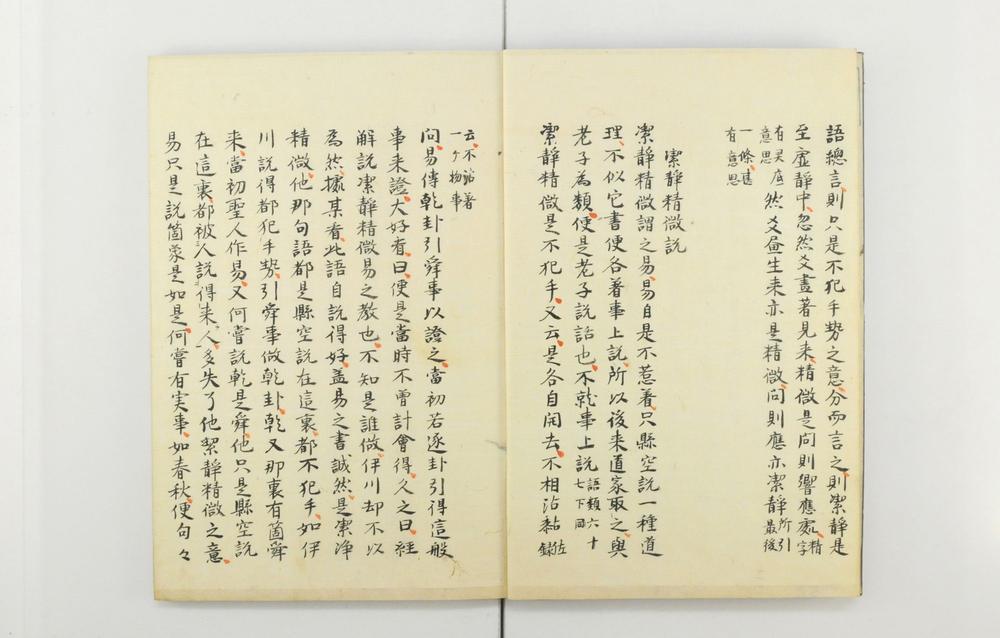 語總言則只是不犯手勢之意分而言之則潔靜是
至虛靜中忽然爻畫著見来精微是問則響應處精字
有灵底意思 然爻畫生来亦是精微問則應亦潔靜所引最後
一條甚有意思
潔靜精微說
潔靜精微謂之易易自是不惹着只縣空說一種道
理不似它書便各著事上說所以後来道家取之與
老子為類便是老子說話也不就事上說語類六十七下同
潔靜精微是不犯手又云是各自開去不相沾黏㽵録
云不沾著一个物事
問易傳乾卦引舜事以證之當初若逐卦引得這般
事来證大好看曰便是當時不曾計會得久之曰經
解說潔靜精微易之教也不知是誰做伊川却不以
為然據某看此語自說得好盖易之書誠然是潔净
精微他那句語都是縣空說在這裏都不犯手如伊
川說得都犯手勢引舜事做乾卦乾又那裏有箇舜
来當初聖人作易又何嘗說乾是舜他只是縣空說
在這裏都被人說得来人多失了他絜靜精微之意
易只是說箇象是如是何嘗有実事如春秋便句々